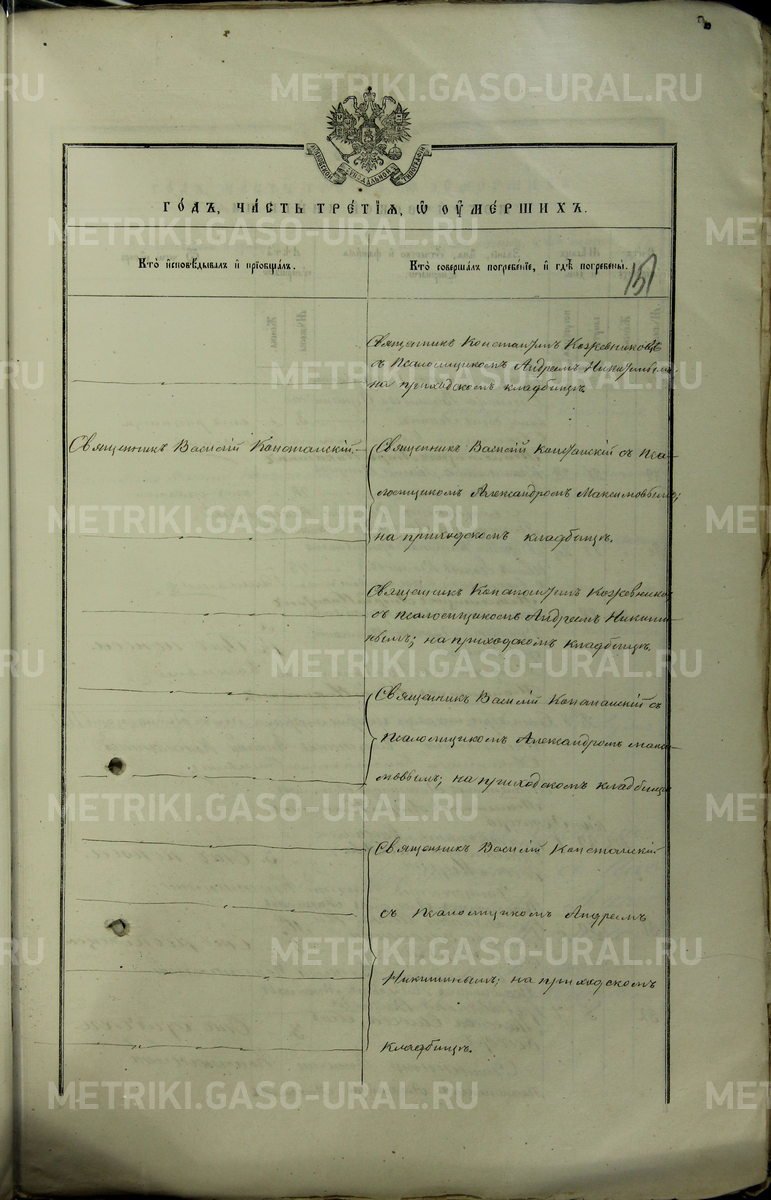 METRIKI.GASO-URAL.RU
МОСКОВСКОЙ СѴНОДАЛЬНОЙ ТѴПОГРАФІИ
ГО́ДЪ, ЧА́СТЬ ТРЕ́ТІѦ, Ѡ҆ ОУ҆МЕ́РШИХЪ.
Кто̀ и҆сповѣ́дывалъ и҆ прїѡбща́лъ.
Кто̀ соверша́лъ погребе́нїе, и҆ гдѣ̀ погребены̀.
151
Священникъ Константинъ Кожевниковъ
съ Псаломщикомъ Андреемъ Никитинымъ
на приходскомъ кладбищѣ.
Священникъ Василій Конотанскій.
Священникъ Василій Конотанскій съ Пса-
ломщикомъ Александромъ Максимовымъ;
на приходскомъ кладбищѣ.
Священникъ Константинъ Кожевников
съ псаломщикомъ Андреемъ Никити-
нымъ; на приходскомъ кладбищѣ.
Священникъ Василій Конотанскій съ
Псаломщикомъ Александромъ Макси-
мовымъ; на приходскомъ кладбищѣ
Священникъ Василій Конотанскій
съ псаломщикомъ Андреемъ
Никитинымъ; на приходскомъ
кладбищѣ.